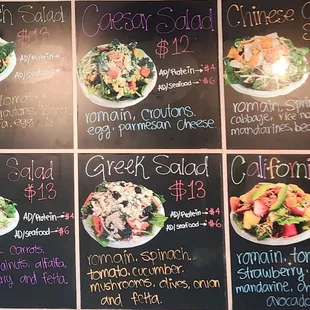 Salad
$13
AD/Protein → $4
AD/Seafood → $6
egg
Caesar Salad
$12
AD/Protein → $4
AD/Seafood → $6
romain, croutons.
egg, parmesan cheese.
Chinese
romain,
cabbage, rice
mandarines,
Salad
$13
AD/Protein → $4
AD/Seafood → $6
carrots,
alfalfa,
and fetta.
Greek Salad
$13
AD/Protein → $4
AD/Seafood → $6
romain, spinach.
tomato, cucumber.
mushrooms, olives, onion
and fetta.
romain,
strawberry,
mandarine,
avocado